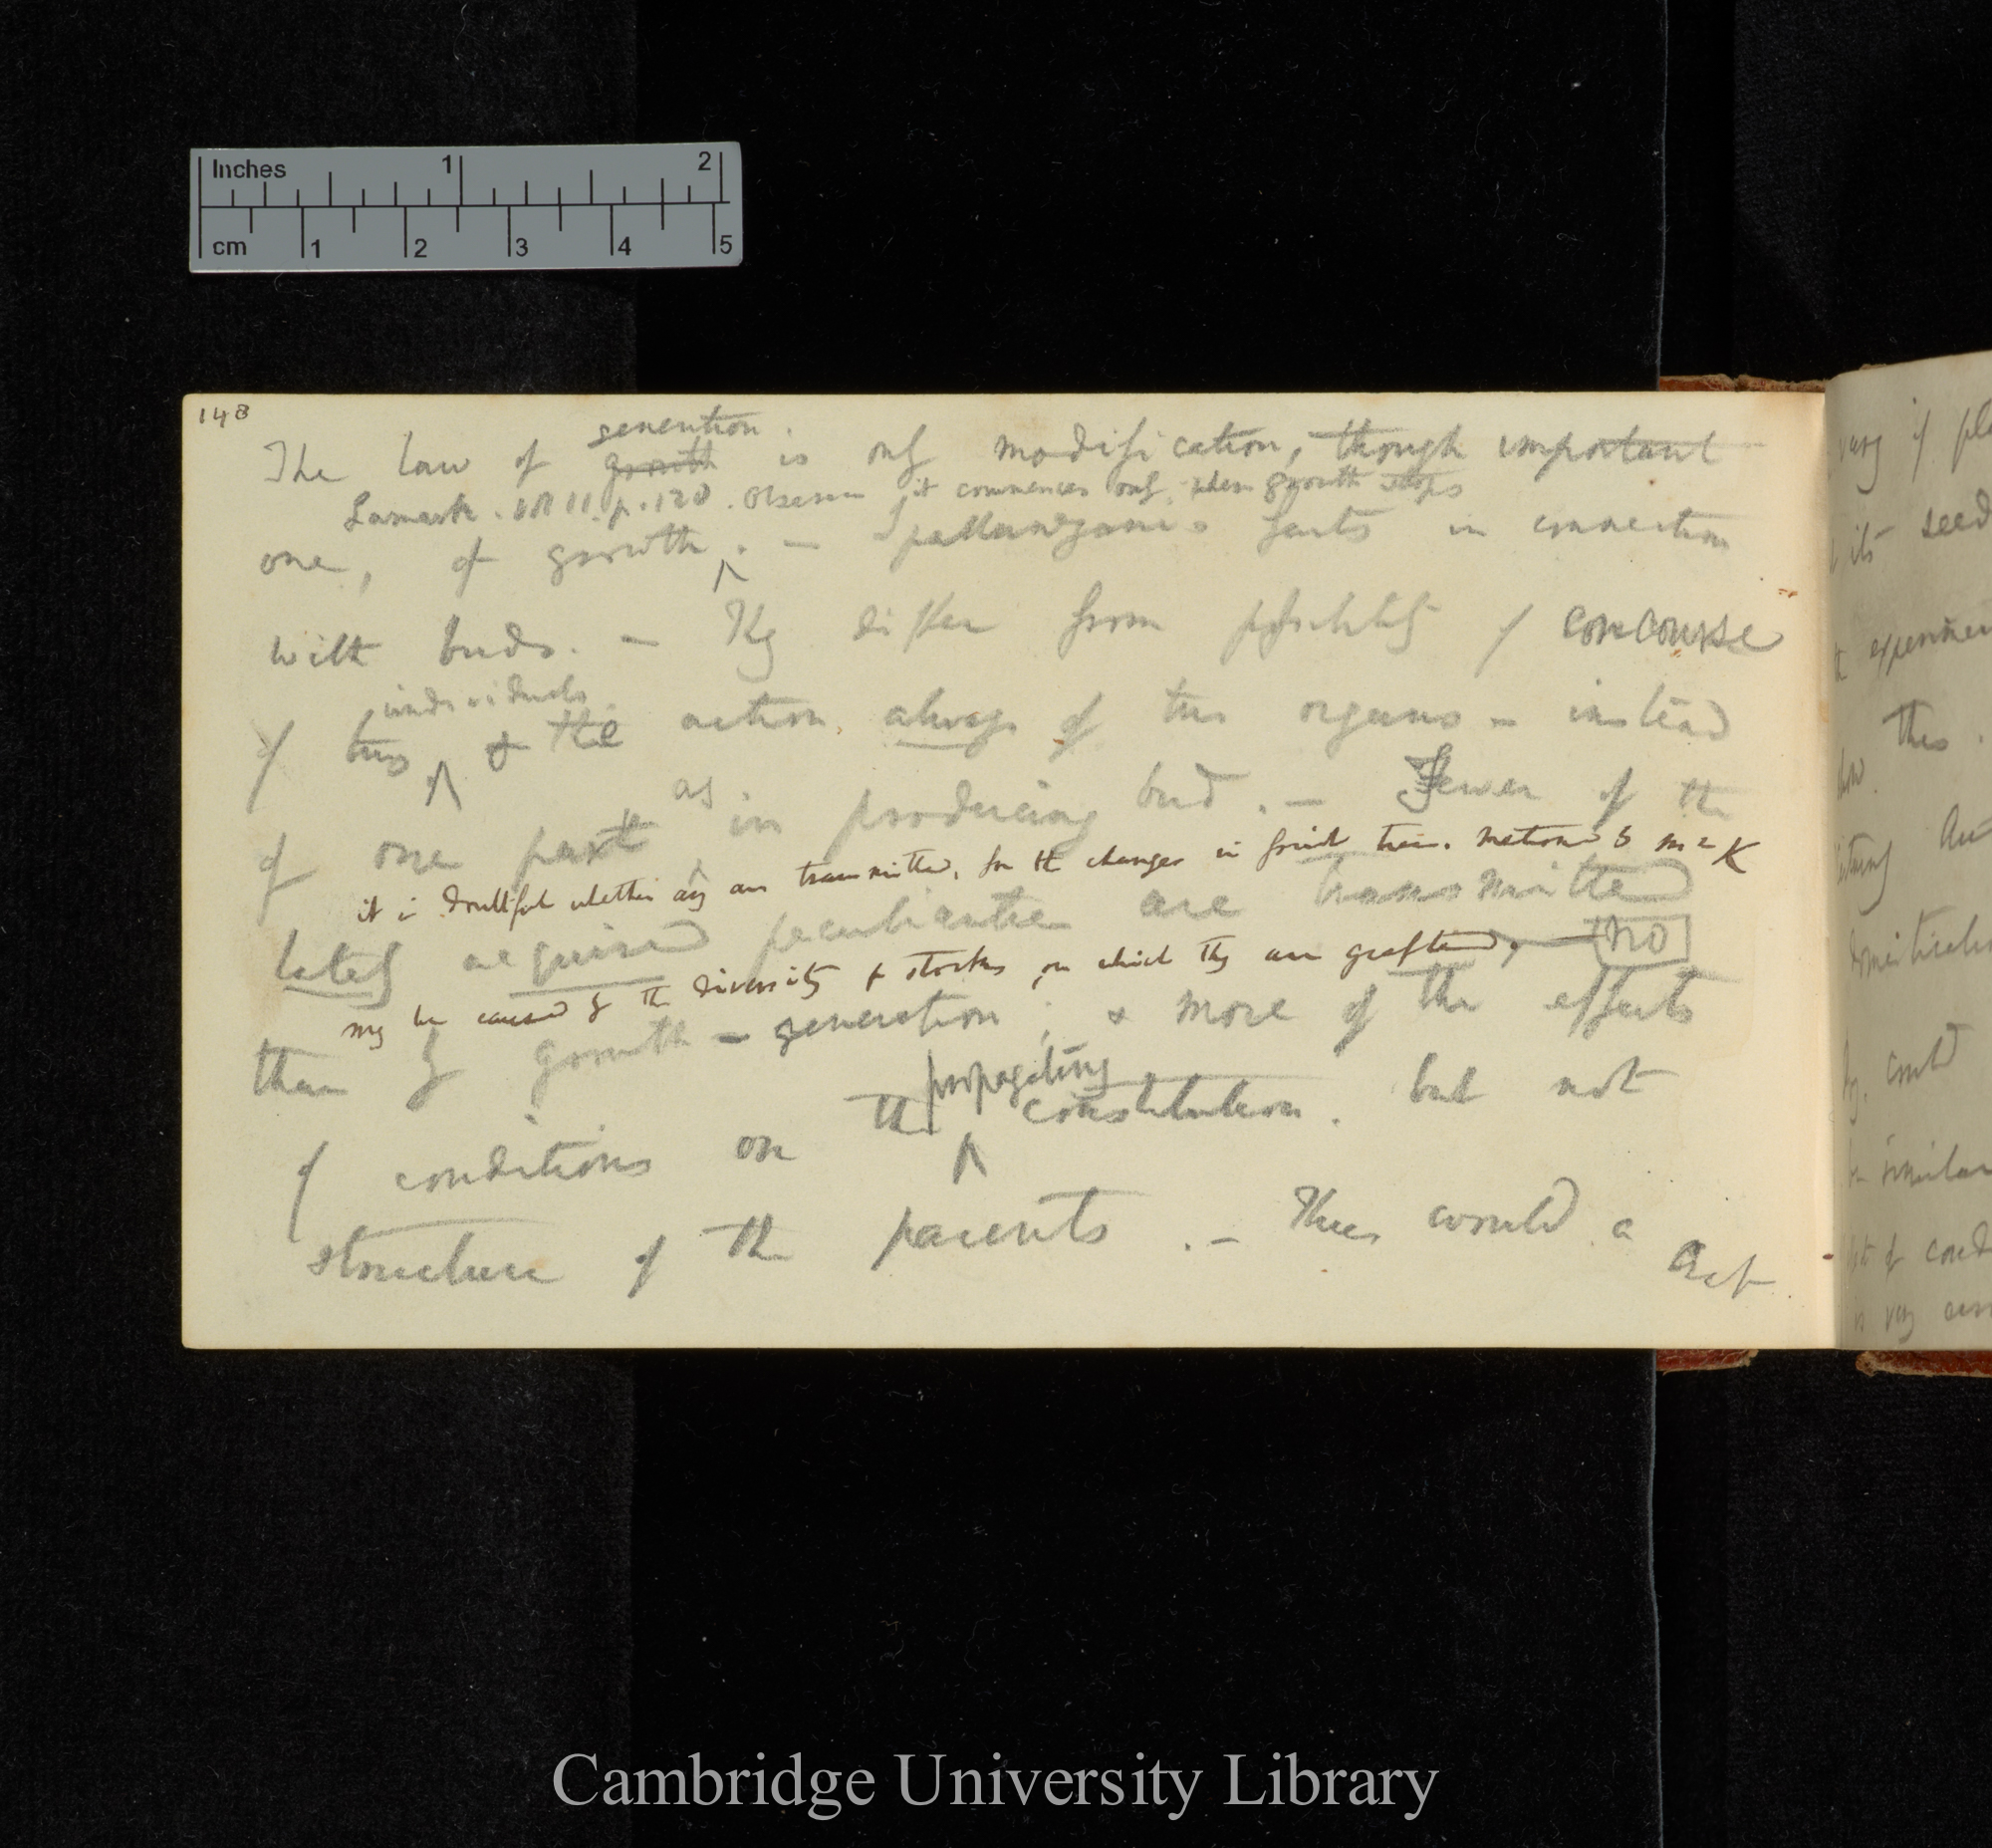 Inches 1 2
cm 1 2 3 4 5
148
generation.
The law of growth is only modification, though important
Lamark. Vol II. p. 120. Observes it commences only when growth stops
one, of growth. — Spallanzanis facts in connection
with buds. — They differ from possibility of concourse
individuals
of two & the action always of two organs — instead
of one part as in producing bud. — Fewer of the
it is doubtful whether any are transmitted, for the changes in fruit trees. mentioned by Mr K
lately acquired peculiarities are transmitted
may be caused by the diversity of stocks, on which they are grafted, — NO
than by growth — generation; & more of the effects
propagating
of conditions on the constitution. but not
structure of the parents. — Thus would a
act
vary if
its seed
this.
could
similar
is very
Cambridge University Library